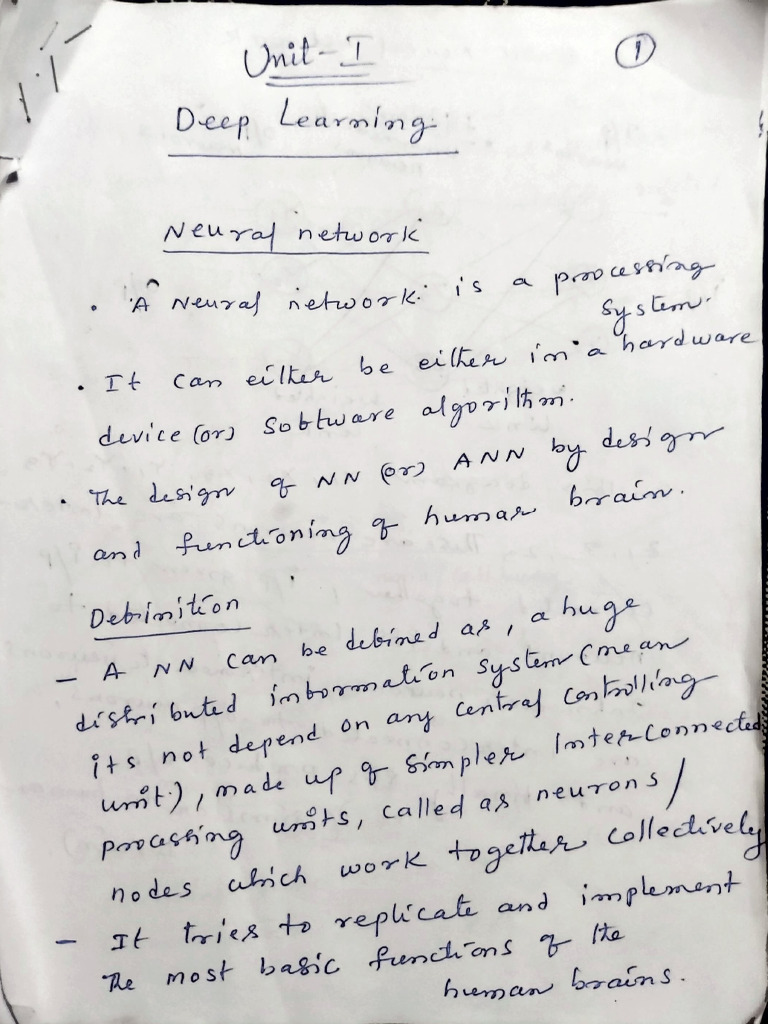 Unit - I
①
Deep Learning
Neural network
• A Neural network is a processing
system.
• It can either be either in a hardware
device (or) Software algorithm.
• The design of NN (or) ANN by design
and functioning of human brain.
Definition
- A NN can be defined as, a huge
distributed information system (mean
its not depend on any central controlling
unit), made up of simpler Interconnected
processing units, called as neurons /
nodes which work together collectively
- It tries to replicate and implement
the most basic functions of the
human brains.